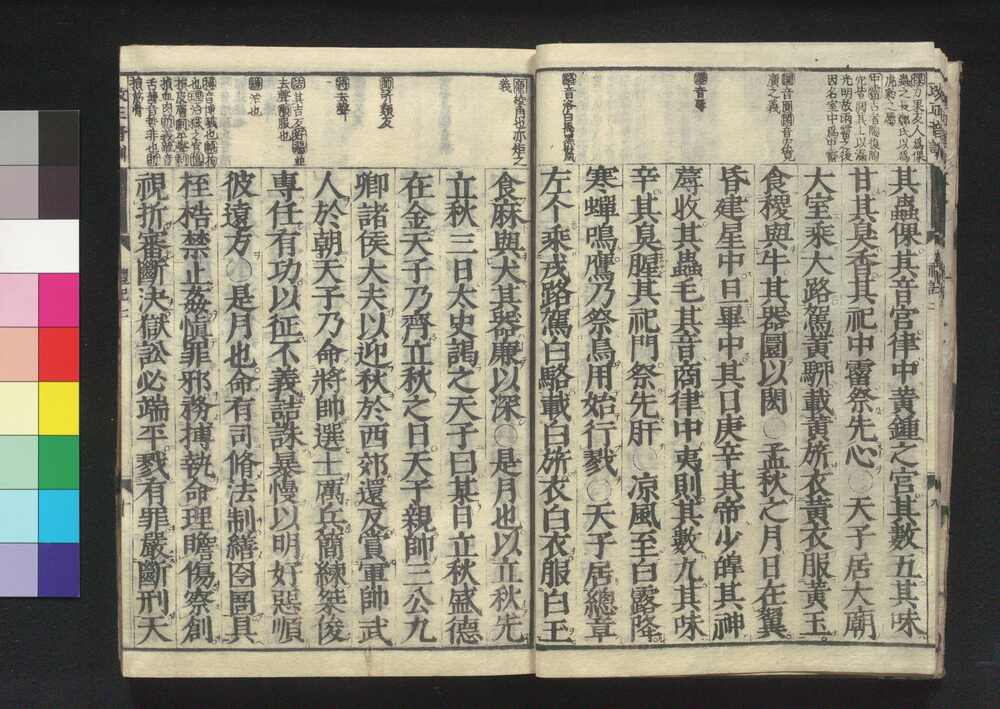 其蟲倮其音宮律中黃鍾之宮其數五其味
甘其臭香其祀中霤祭先心○天子居大廟
大室乘大路駕黃駵載黃旂衣黃衣服黃玉
食稷與牛其器圜以閎○孟秋之月日在翼
昏建星中旦畢中其日庚辛其帝少皞其神
蓐收其蟲毛其音商律中夷則其數九其味
辛其臭腥其祀門祭先肝○凉風至白露降
寒蟬鳴鷹乃祭鳥用始行戮○天子居總章
左个乘戎路駕白駱載白旂衣白衣服白玉
食麻與犬其器廉以深○是月也以立秋先
立秋三日太史謁之天子曰某日立秋盛德
在金天子乃齊立秋之日天子親帥三公九
卿諸侯大夫以迎秋於西郊還反賞軍帥武
人於朝天子乃命將帥選士厲兵簡練桀俊
專任有功以征不義詰誅暴慢以明好惡順
彼遠方○是月也命有司脩法制繕囹圄具
桎梏禁止姦愼罪邪務搏執命理瞻傷察創
視折審斷決獄訟必端平戮有罪嚴斷刑天